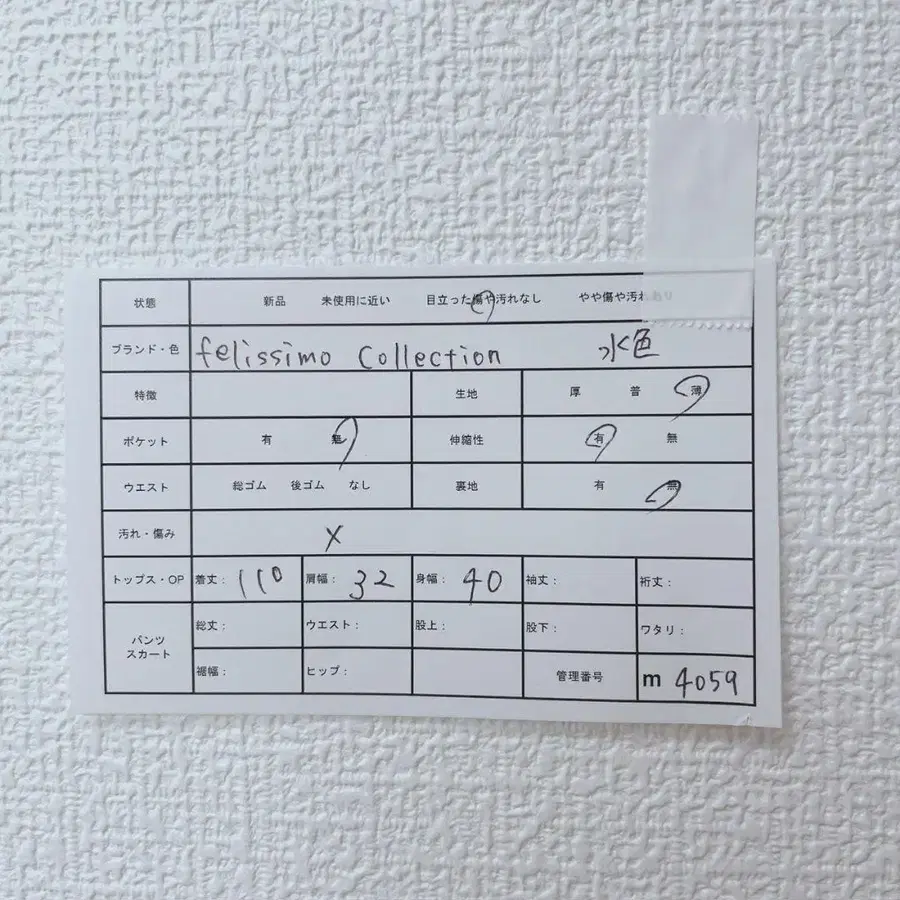 状態 新品 未使用に近い 目立った傷や汚れなし やや傷や汚れ
ブランド・色 felissimo collection 水色
特徴 生地 厚 普 薄
ポケット 有 無 伸縮性 有 無
ウエスト 総ゴム 後ゴム なし 裏地 有 無
汚れ・傷み ×
トップス・OP 着丈: 110 肩幅: 32 身幅: 40 袖丈: 裄丈:
パンツ スカート 総丈: ウエスト: 股上: 股下: ワタリ:
裾幅: ヒップ: 管理番号 m 4059